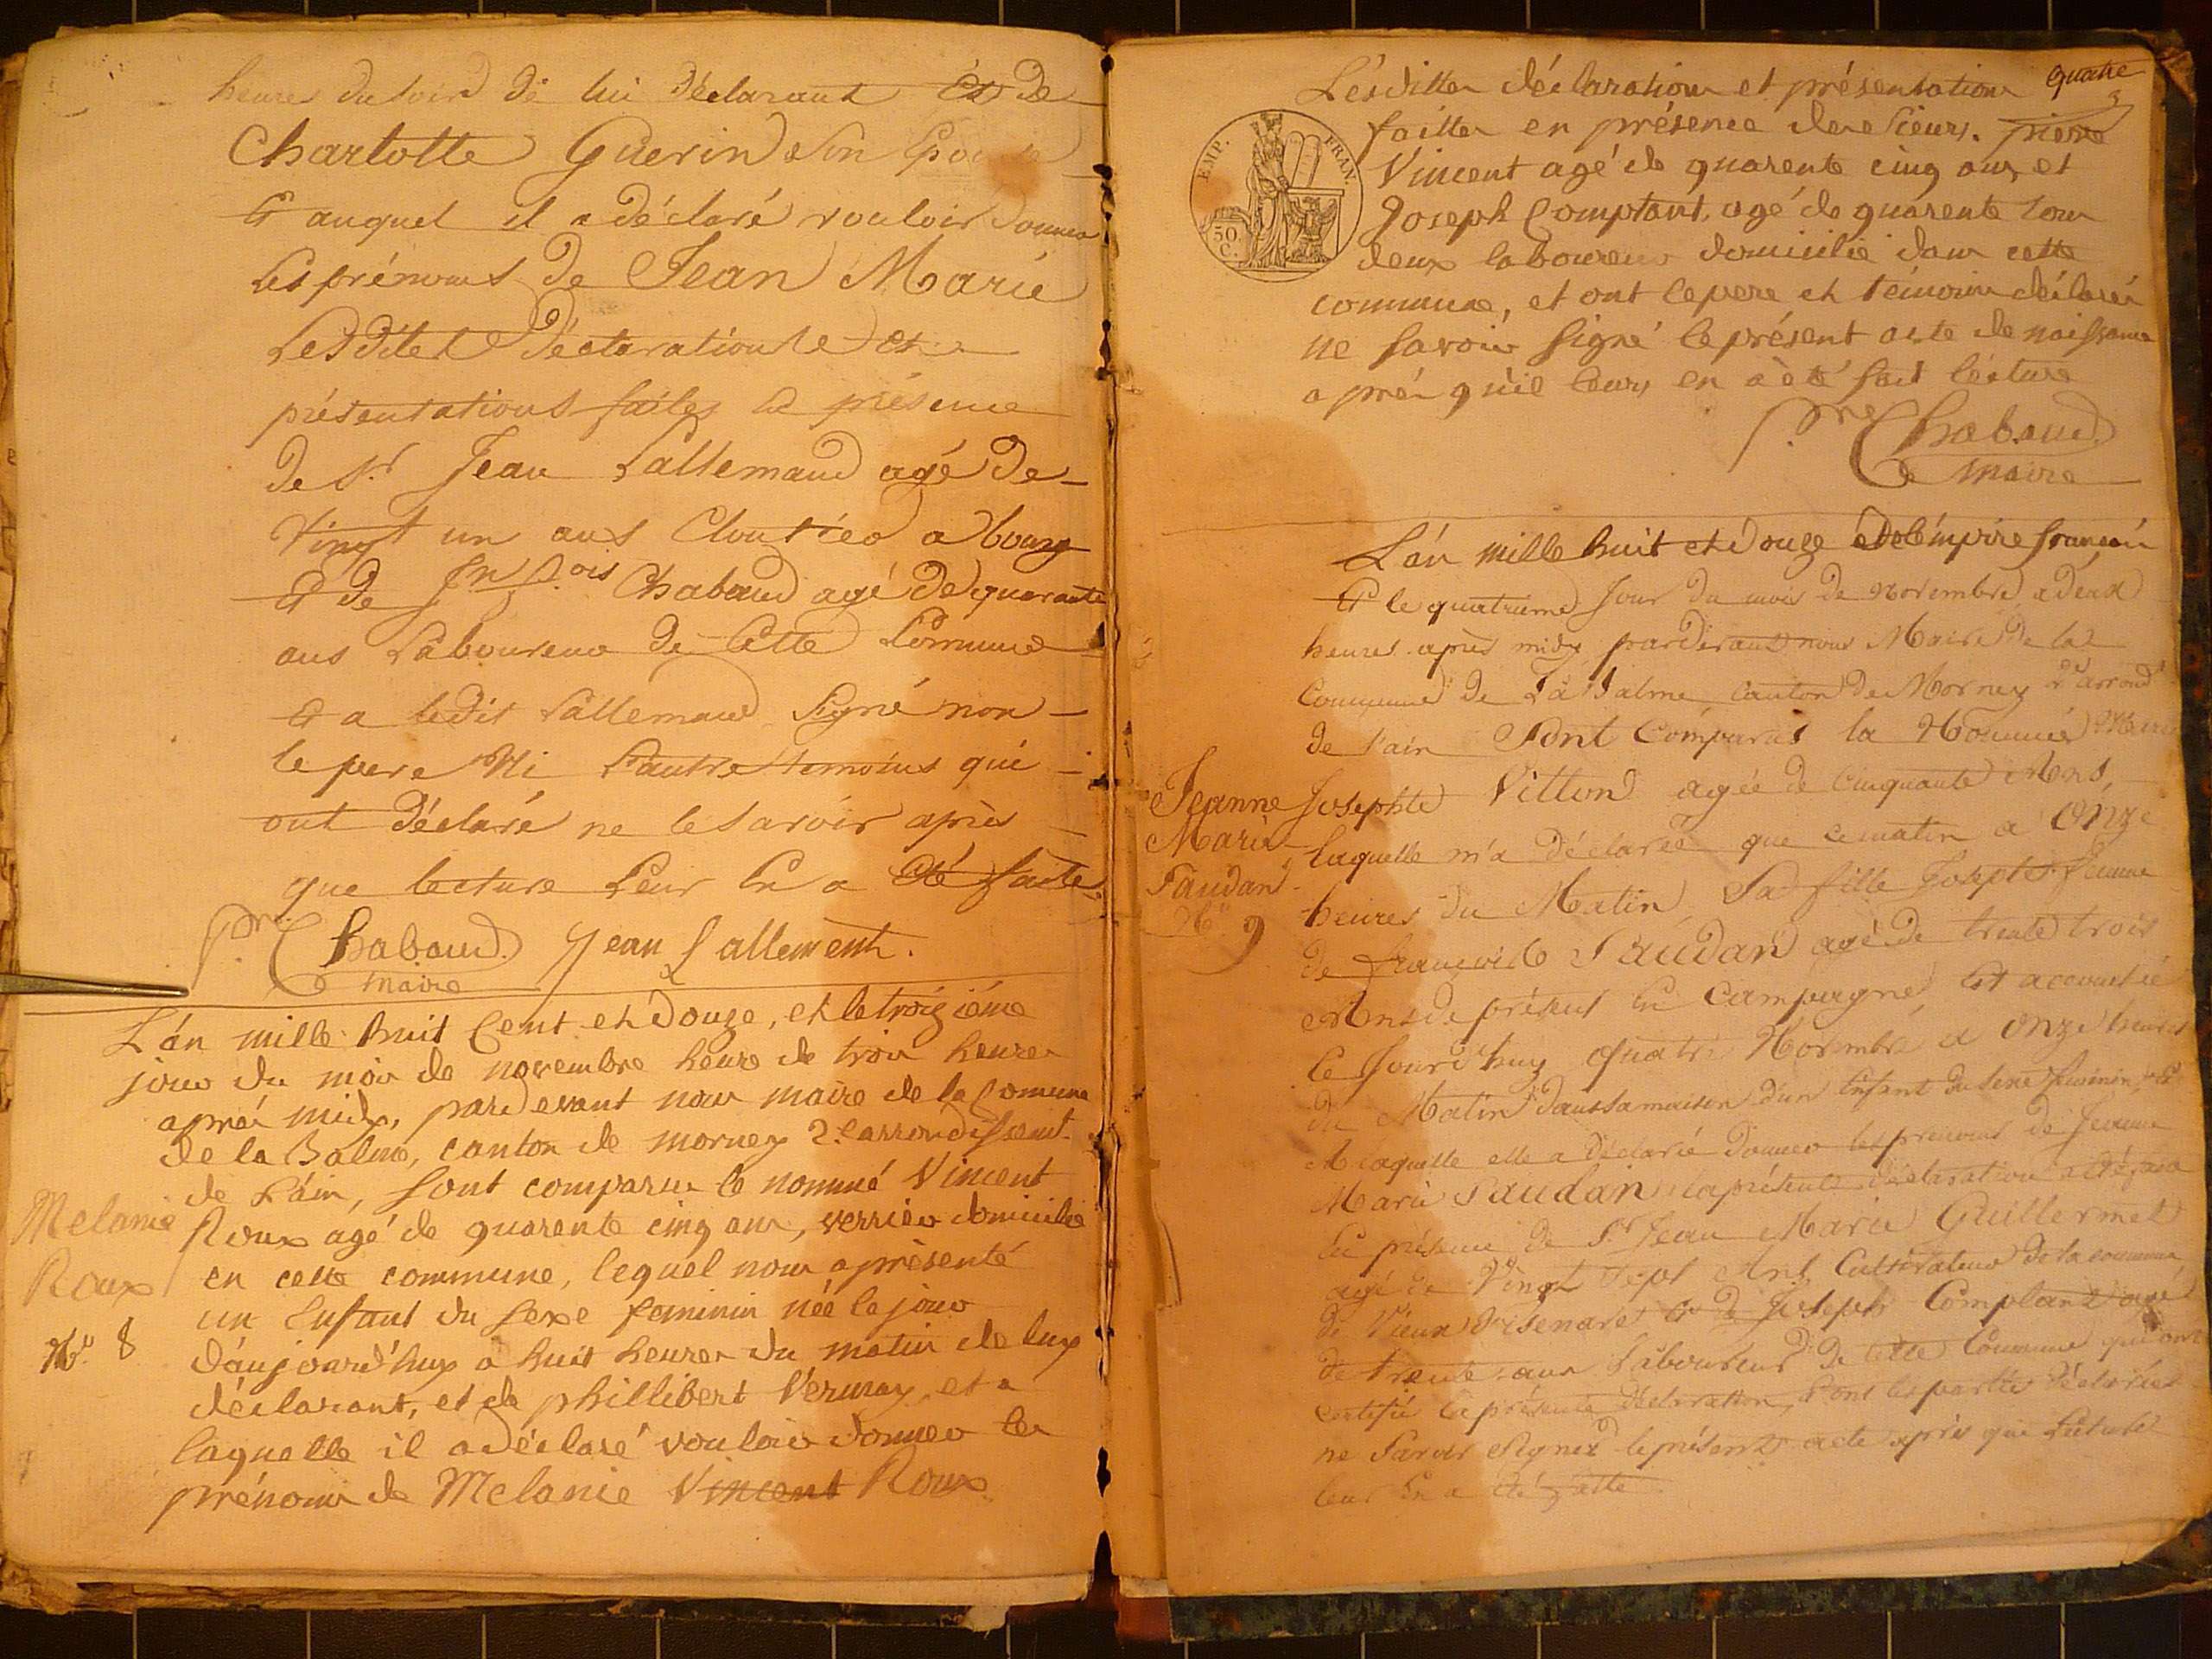 heures du soir de lui déclarant Et de
Charlotte Guerin Son Epouse
Et auquel il a déclaré vouloir donner
les prénoms de Jean Marie
Lesdites déclarations et
présentations faites en présence
de Sr Jean Lallemand agé de
Vingt un ans Cloutier a bourg
Et de Jn fois Chabaud agé de quarante
ans Laboureur de Cette Commune
Et a ledit Lallemand Signé non
le pere Ni L'autre temoins qui
ont déclaré ne le savoir après
que lecture Leur En a été faite
Chabaud Jean Lallement.
maire
L'án mille huit Cent et douze, et le troizième
jour du mois de novembre heure de trois heures
aprés midy, pardevant nous maire de la Comune
de la Balme, canton de mornay 2.e arrondissemt.
de L'áin, sont comparu le nommé Vincent
Melanie
Roux agé de quarente cinq ans, verrier domicilié
Roux
en cette commune, lequel nous a présenté
un Enfant du sexe feminin née le jour
No. 8
d'aujourd'huy a huit heures du matin de luy
déclarant, et de phillibert Vernay, et a
laquelle il a déclaré vouloir donner les
prénoms de Melanie Vincent Roux
quatre
Lésdittes déclarations et présentations
EMP. FRAN.
50. C.
faittes en présence des Sieurs. pierre
Vincent agé de quarente cinq ans, et
Joseph Comptant, agé de quarente tous
deux laboureurs domicilié dans cette
commune, et ont le pere et témoins déclarés
ne savoir signé le présent acte de naissance
aprés qu'il leurs en a èté fait lécture
Chabaud
Maire
L'án mille huit et douze de l'émpire françois
Et le quatrieme Jour du mois de novembre a deux
heures après midy pardevant nous Maire de la
Commune de La Balme Canton de Mornay 2e arrondt
de l'ain Sont Comparus la Nommée Marie
Jeanne
Josephte Villond agée de Cinquante Ans,
Marie
laquelle m'a Déclarée que ce matin a Onze
Saudan
heures du Matin Sa fille Josephte femme
No. 9
de francois Saudan agé de trente trois
Ans de présent En Campagne Est accouchée
Ce Jourd'huy Quatre Novembre a onze heures
du Matin dans sa maison d'un Enfant du sexe feminin et
A laquelle elle a déclaré donner les prenoms de Jeanne
Marie Saudan la présente déclaration a été faite
En présence de Sr Jean Marie Guillermet
agé de Vingt Sept Ans Cultivateur de la commune
de Vieux Disenave et de Joseph Complant agé
de trente ans Laboureur de cette Commune qui ont
certifié la présente déclaration, Sont les parties déclarées
ne Savoir Signer le présent acte après que Lecture
leur En a été faitte